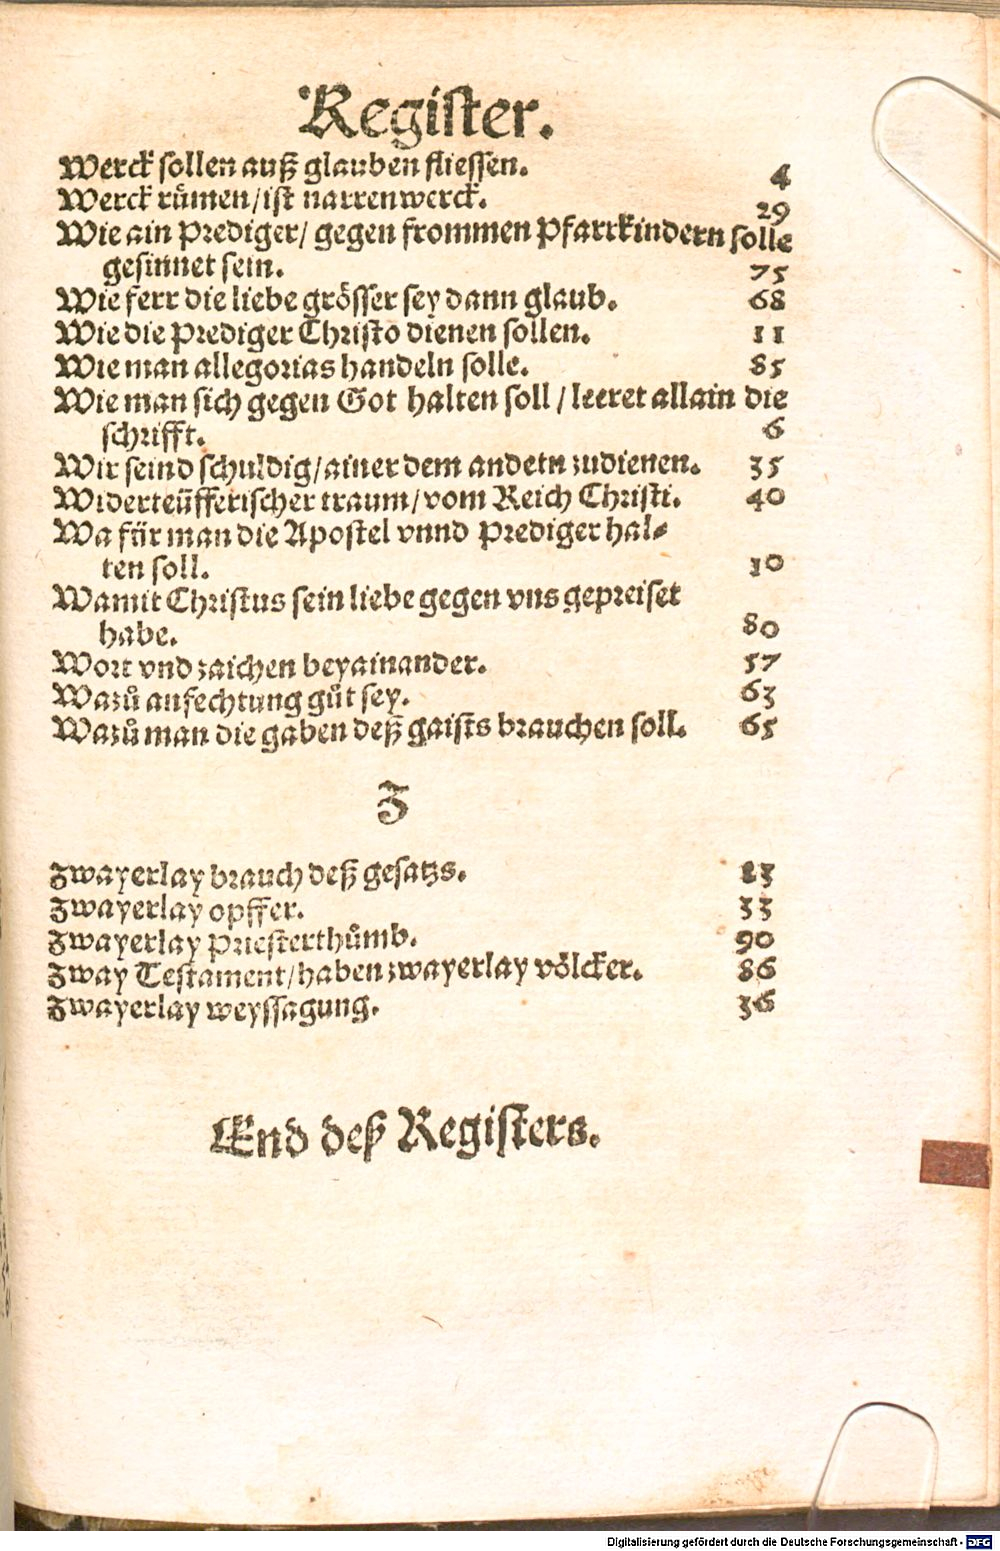 Register.
Werck sollen auß glauben fliessen. 4
Werck růmen/ist narrenwerck. 29
Wie ain Prediger/ gegen frommen Pfarrkindern solle
gesinnet sein. 75
Wie ferr die liebe grösser sey dann glaub. 68
Wie die Prediger Christo dienen sollen. 11
Wie man allegorias handeln solle. 85
Wie man sich gegen Got halten soll / leeret allain die
schrifft. 6
Wir seind schuldig/ainer dem andetn zudienen. 35
Widerteüfferischer traum/vom Reich Christi. 40
Wa für man die Apostel vnnd Prediger hal⸗
ten soll. 10
Wamit Christus sein liebe gegen vns gepreiset
habe. 80
Wort vnd zaichen beyainander. 57
Wazů anfechtung gůt sey. 63
Wazů man die gaben deß gaists brauchen soll. 65
Z
Zwayerlay brauch deß gesatzs. 23
Zwayerlay opffer. 33
Zwayerlay Priesterthůmb. 90
Zway Testament/haben zwayerlay völcker. 86
Zwayerlay weyssagung. 36
End deß Registers.
Digitalisierung gefördert durch die Deutsche Forschungsgemeinschaft - DFG